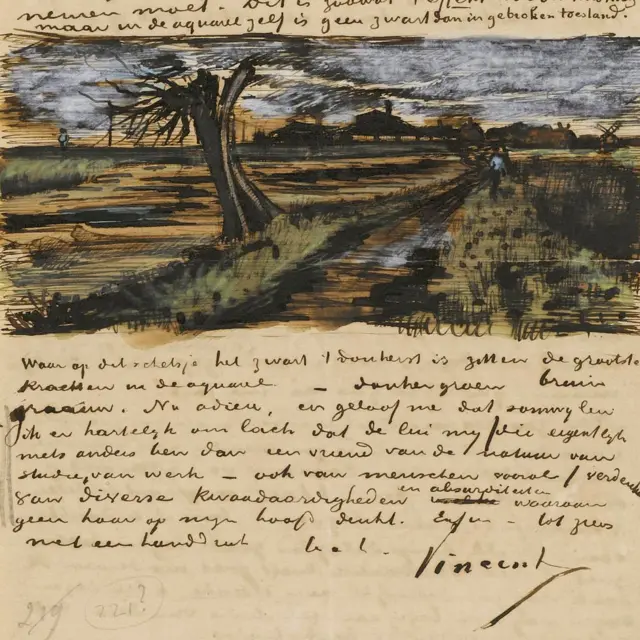 nemen moet. Dit is
maar in de aquarel zelf is geen zwart dan in gebroken toestand.
Waar op dit schetsje het zwart 't donkerst is zitten de grootste
krachten in de aquarel – donker groen bruin
graauw. Nu adieu, en geloof me dat somwylen
ik er hartelyk om lach dat de lui my /die eigentlyk
niets anders ben dan een vriend van de natuur van
studie, van werk – ook van menschen vooral/ verdenken
van diverse kwaadaardigheden en absurditeiten waaraan
geen haar op myn hoofd denkt. Enfin – tot ziens
met een handdruk t. à t.
Vincent
219 221?